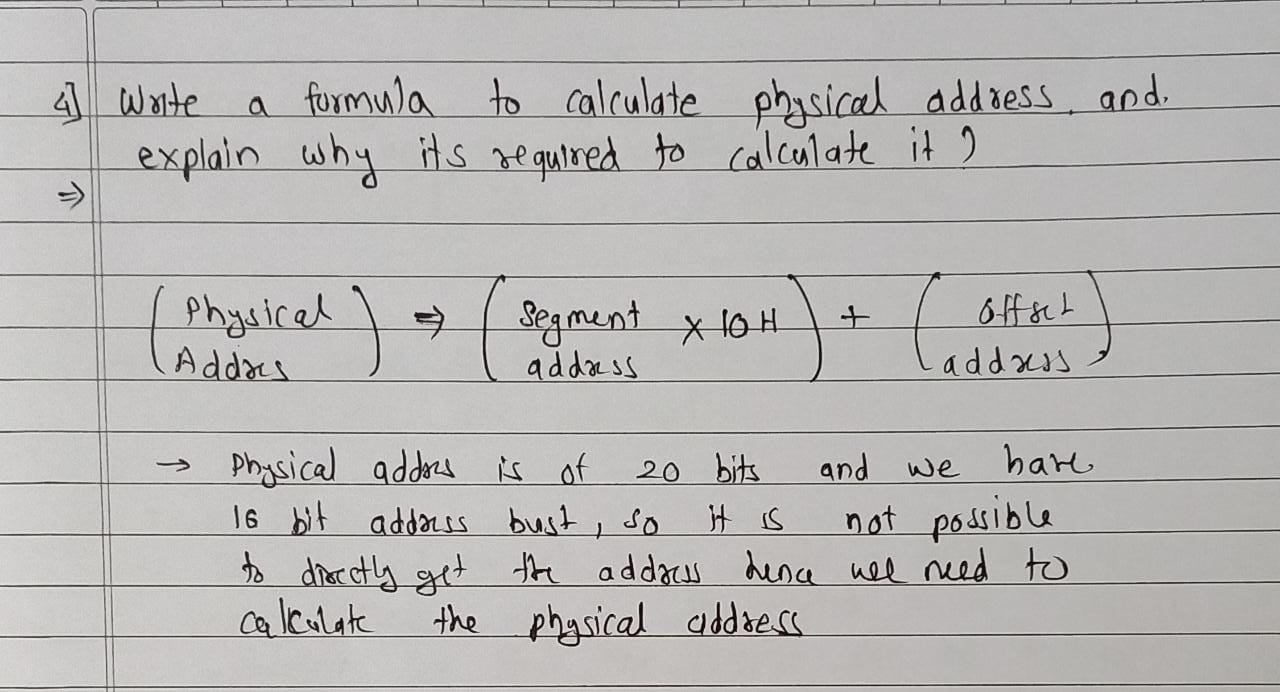 4] Write a formula to calculate physical address and.
explain why its required to calculate it ?
⇒
(Physical Addres) ⇒ (Segment address × 10 H) + (Offset address)
→ Physical addres is of 20 bits and we have
16 bit address bust, so it is not possible
to directly get the address hence wee need to
calculate the physical address